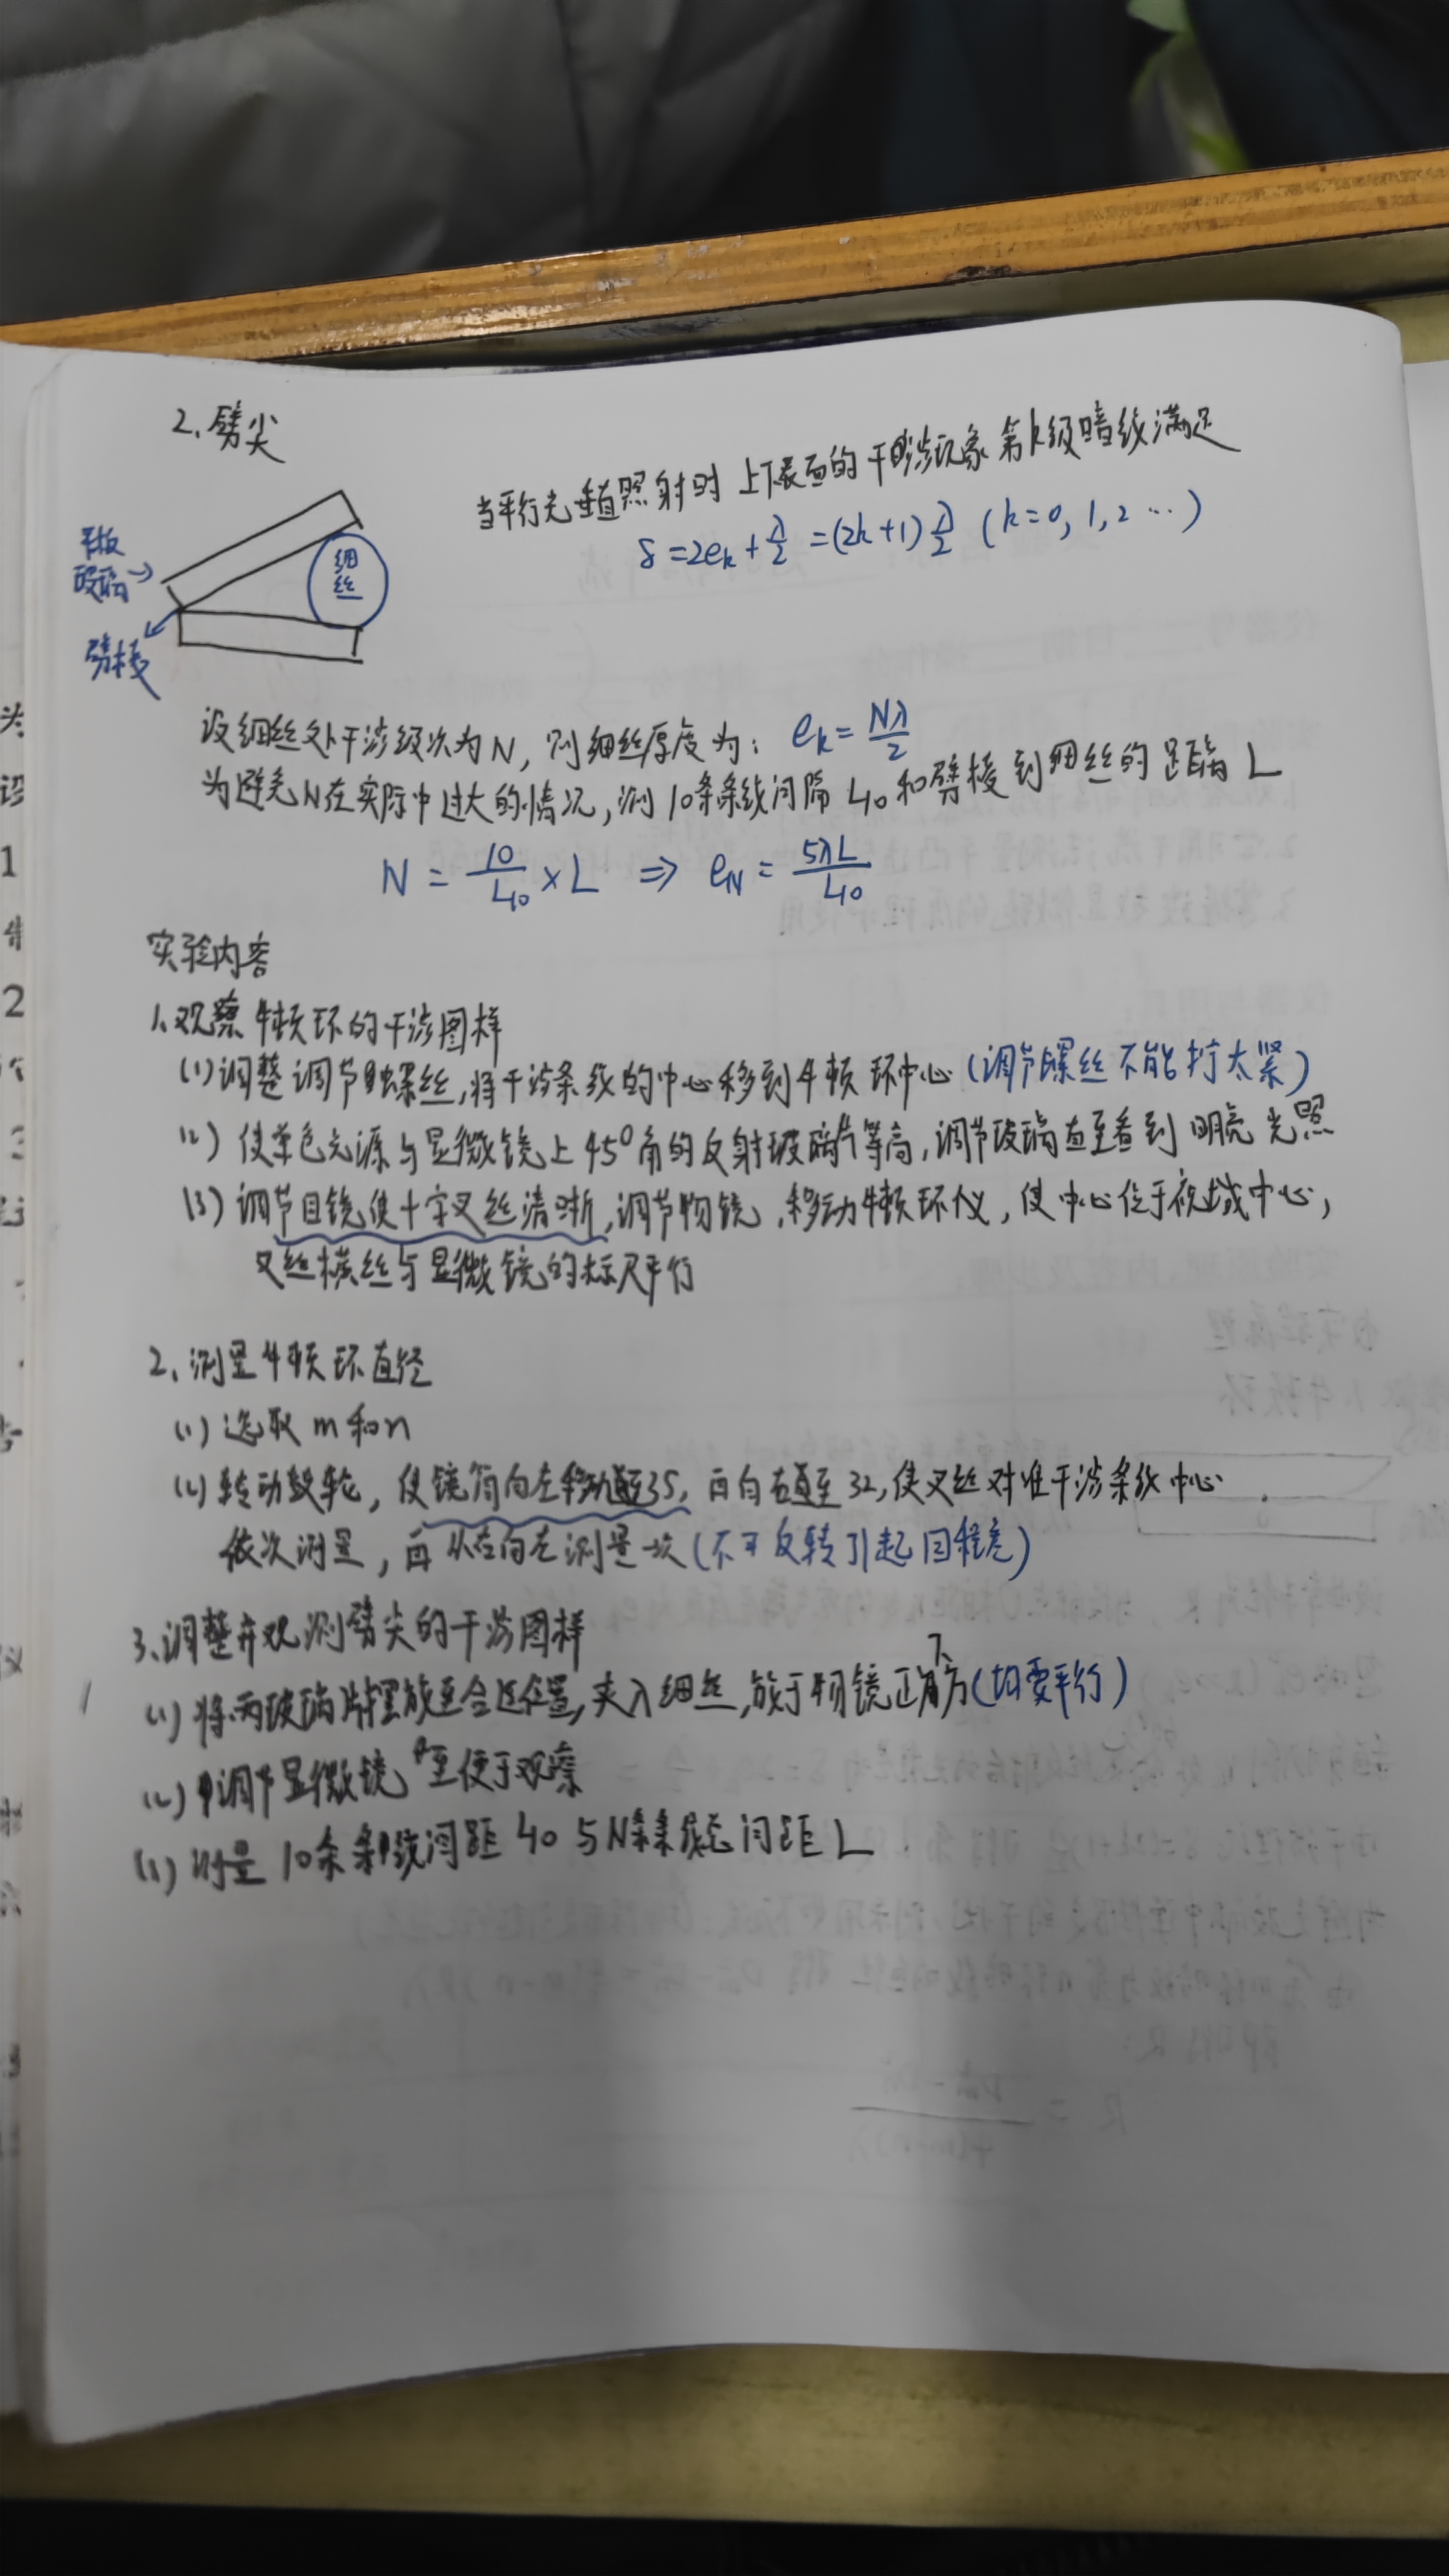 2. 劈尖
当平行光垂直照射时 上下表面的干涉现象 第k级暗线满足
δ=2eₖ+λ/2=(2k+1)λ/2 (k=0,1,2…)
平板
玻璃→
细
丝
劈棱
设细丝处干涉级次为N,则细丝厚度为: eₖ=Nλ/2
为避免N在实际中过大的情况,测10条条纹间隔 L₁₀ 和劈棱到细丝的距离 L
N = 10/L₁₀ × L ⇒ e_N = 5λL/L₁₀
实验内容
1.观察牛顿环的干涉图样
(1)调整调节螺丝,将干涉条纹的中心移到牛顿环中心(调节螺丝不能拧太紧)
(2) 使单色光源与显微镜上45°角的反射玻璃片等高,调节玻璃直至看到明亮光照
(3) 调节目镜使十字叉丝清晰,调节物镜,移动牛顿环仪,使中心位于视域中心,
叉丝横丝与显微镜的标尺平行
2. 测量牛顿环直径
(1) 选取 m和n
(2) 转动鼓轮,使镜筒向左移动至35,再向右至32,使叉丝对准干涉条纹中心
依次测量,再从右向左测量一次(不可反转引起回程差)
3.调整并观测劈尖的干涉图样
(1) 将两玻璃片摆放至合适位置,夹入细丝,放于物镜正下方(切要平行)
(2) 调节显微镜至便于观察
(3) 测量10条条纹间距 L₁₀ 与N条条纹总间距L